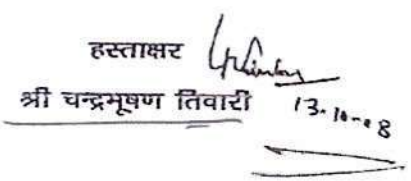 हस्ताक्षर
श्री चन्द्रभूषण तिवारी 13.10.08